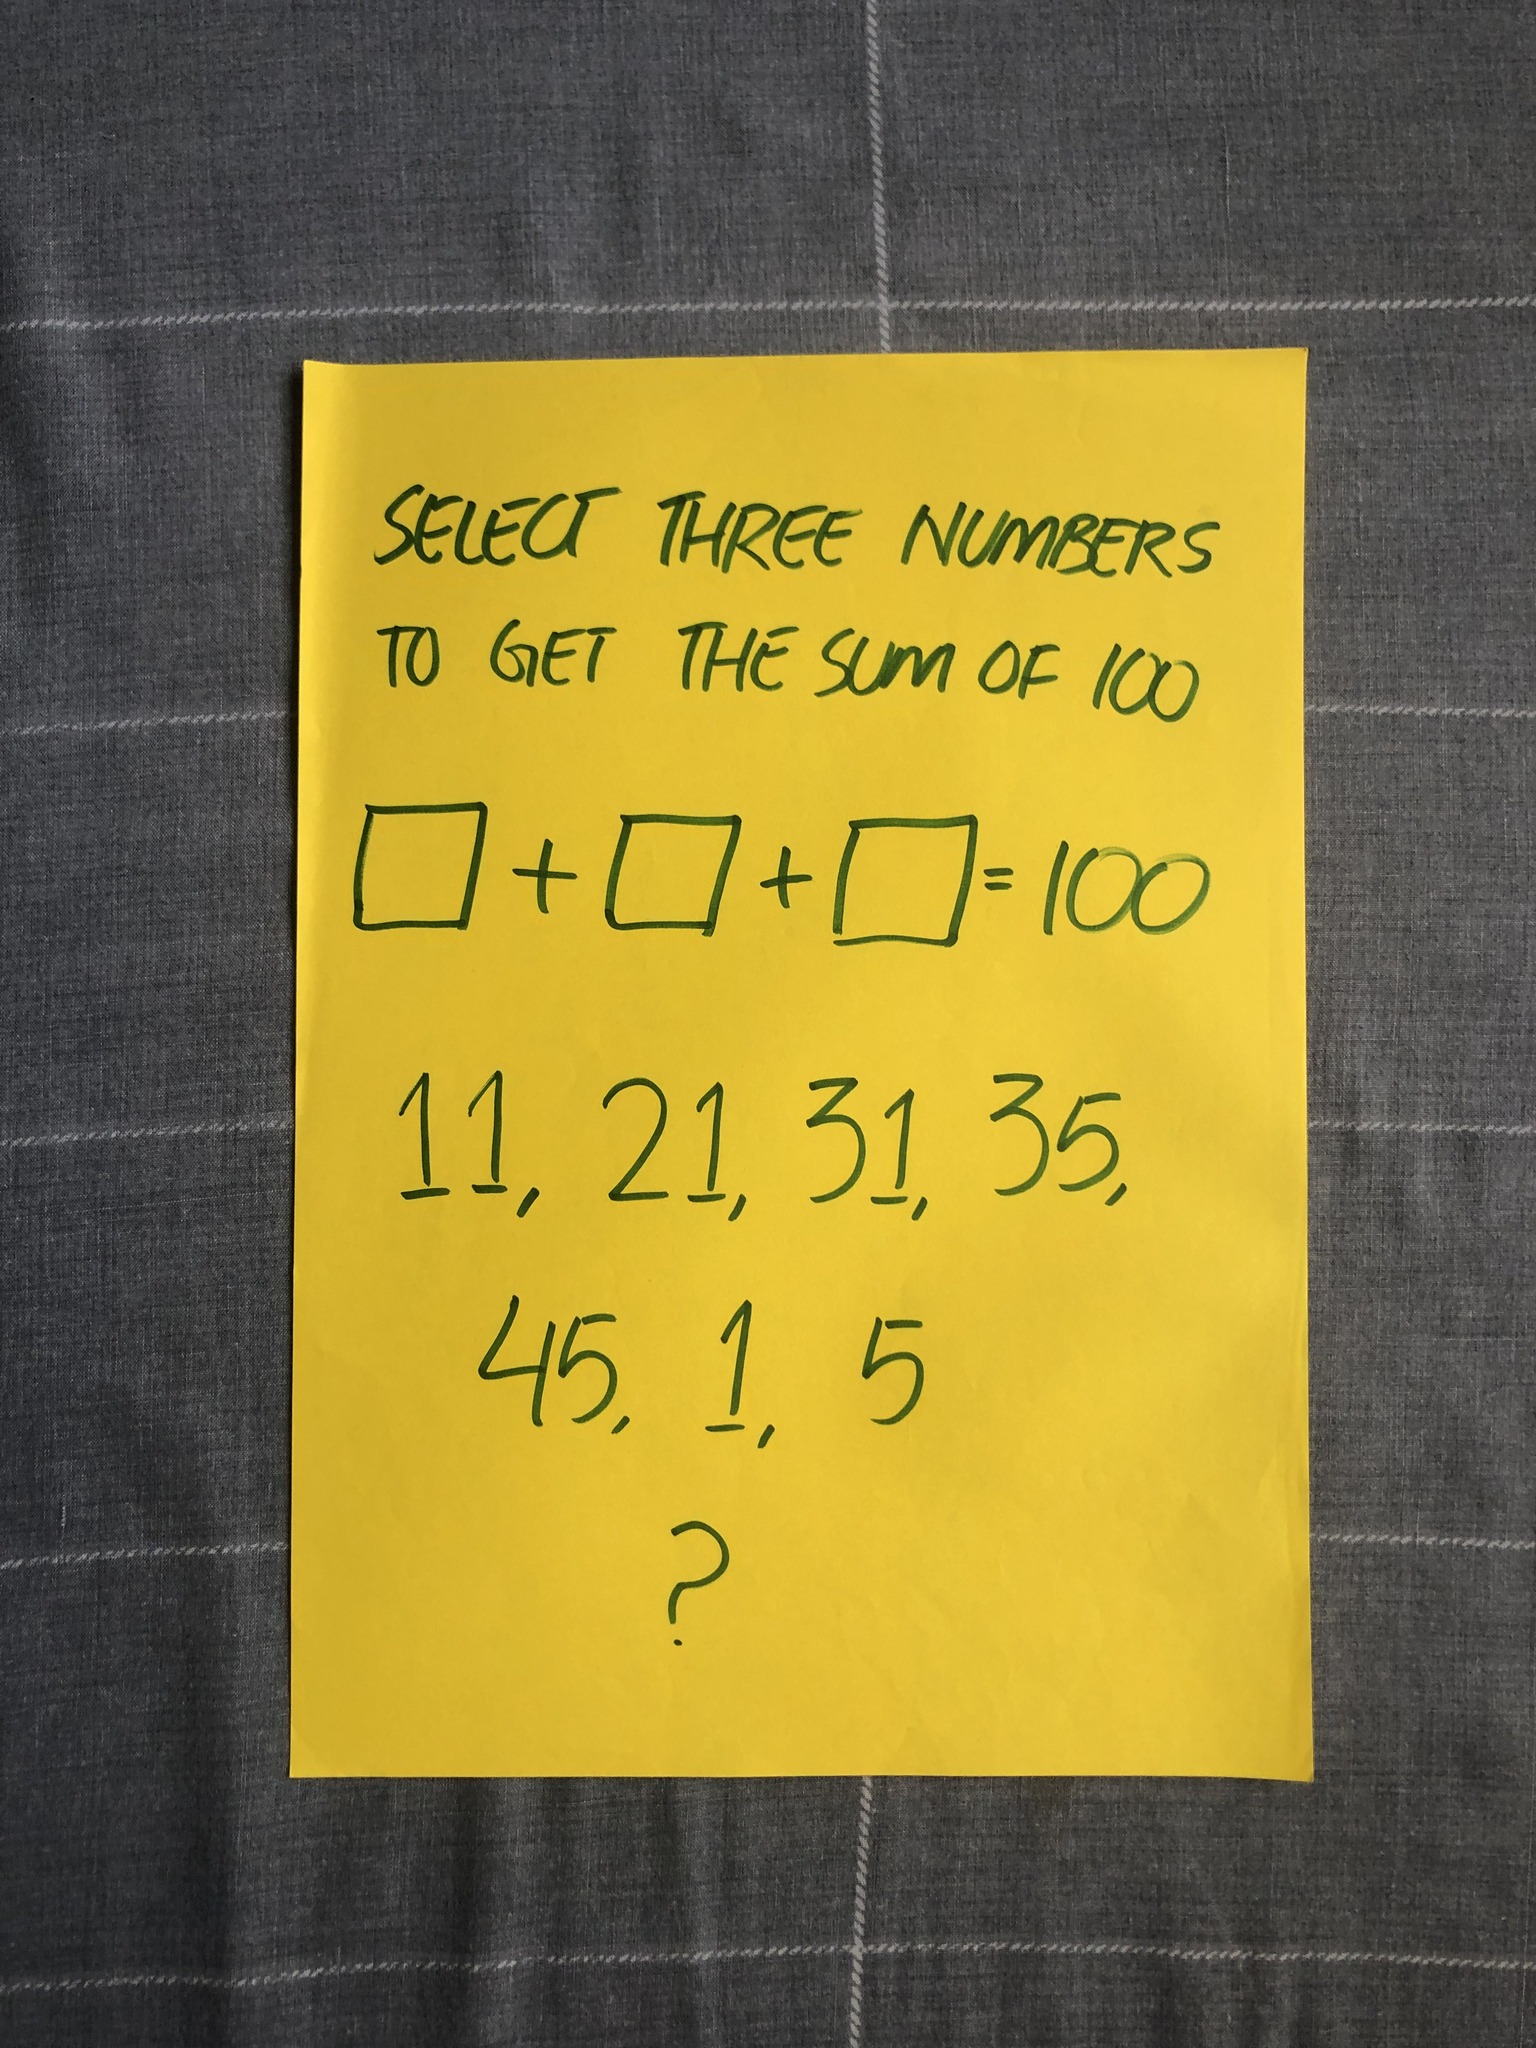 SELECT THREE NUMBERS
TO GET THE SUM OF 100
□ + □ + □ = 100
11, 21, 31, 35,
45, 1, 5
?